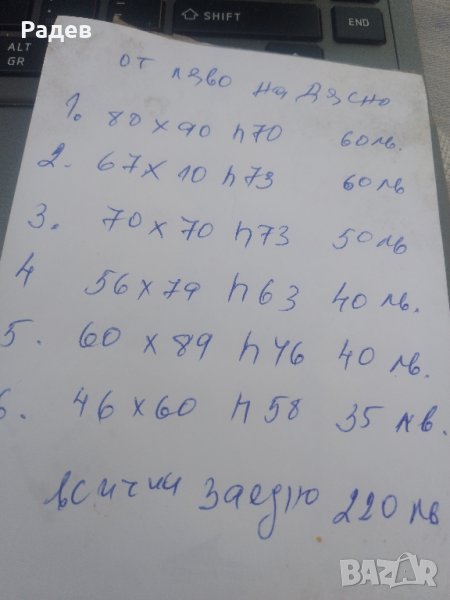 Радев
ALT GR
SHIFT
от ляво на дясно
1. 80 x 90 h70 60 лв.
2. 67 x 10 h73 60 лв
3. 70 x 70 h73 50 лв
4 56 x 79 h63 40 лв.
5. 60 x 89 h46 40 лв.
6. 46 x 60 h58 35 лв.
всички заедно 220 лв
BAZAR